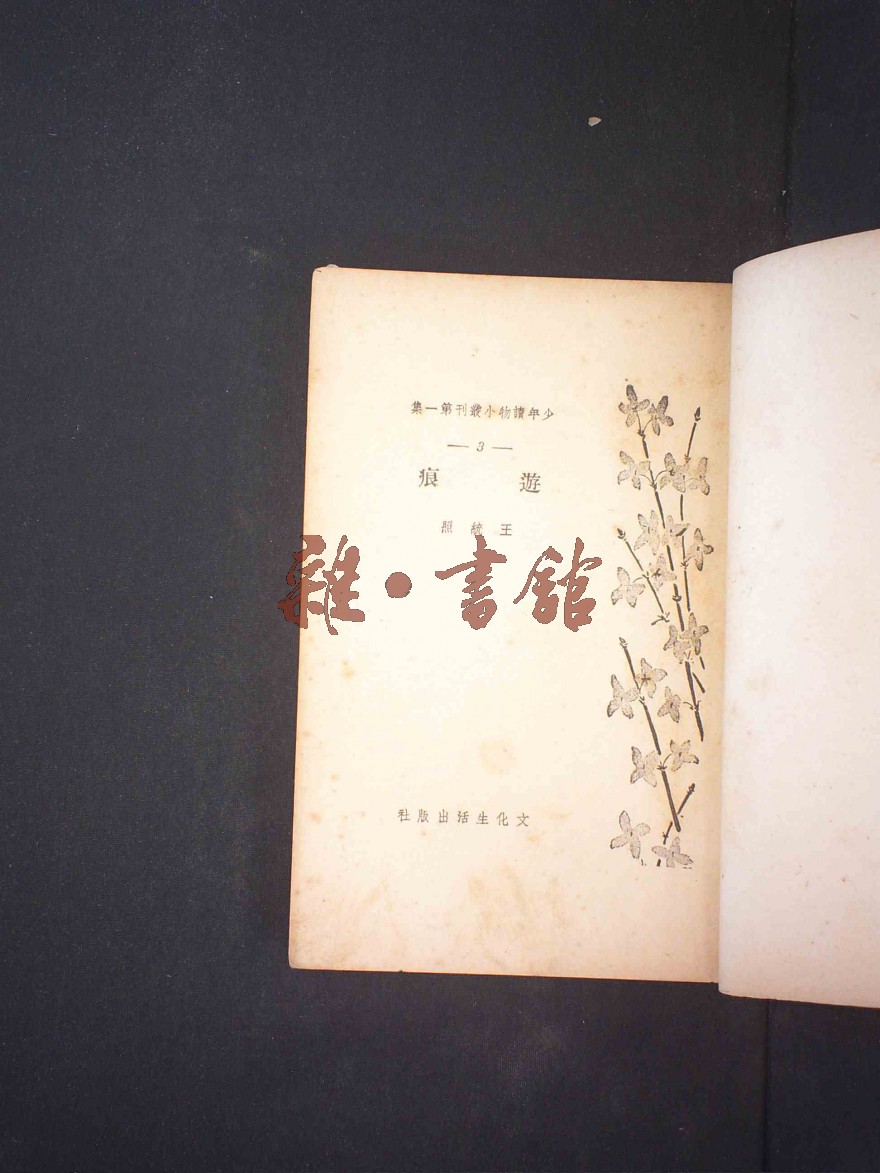 少年讀物小叢刊第一集
— 3 —
遊痕
王統照
雜·書館
文化生活出版社